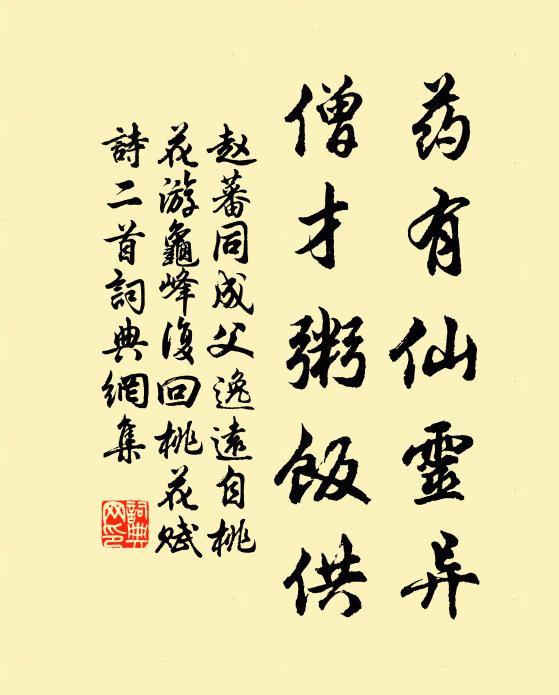 药有仙靈异
僧才粥飯供
赵蕃同成父逸遠自桃
花游龜峰復回桃花赋
詩二首詞典網集
詞典
网印